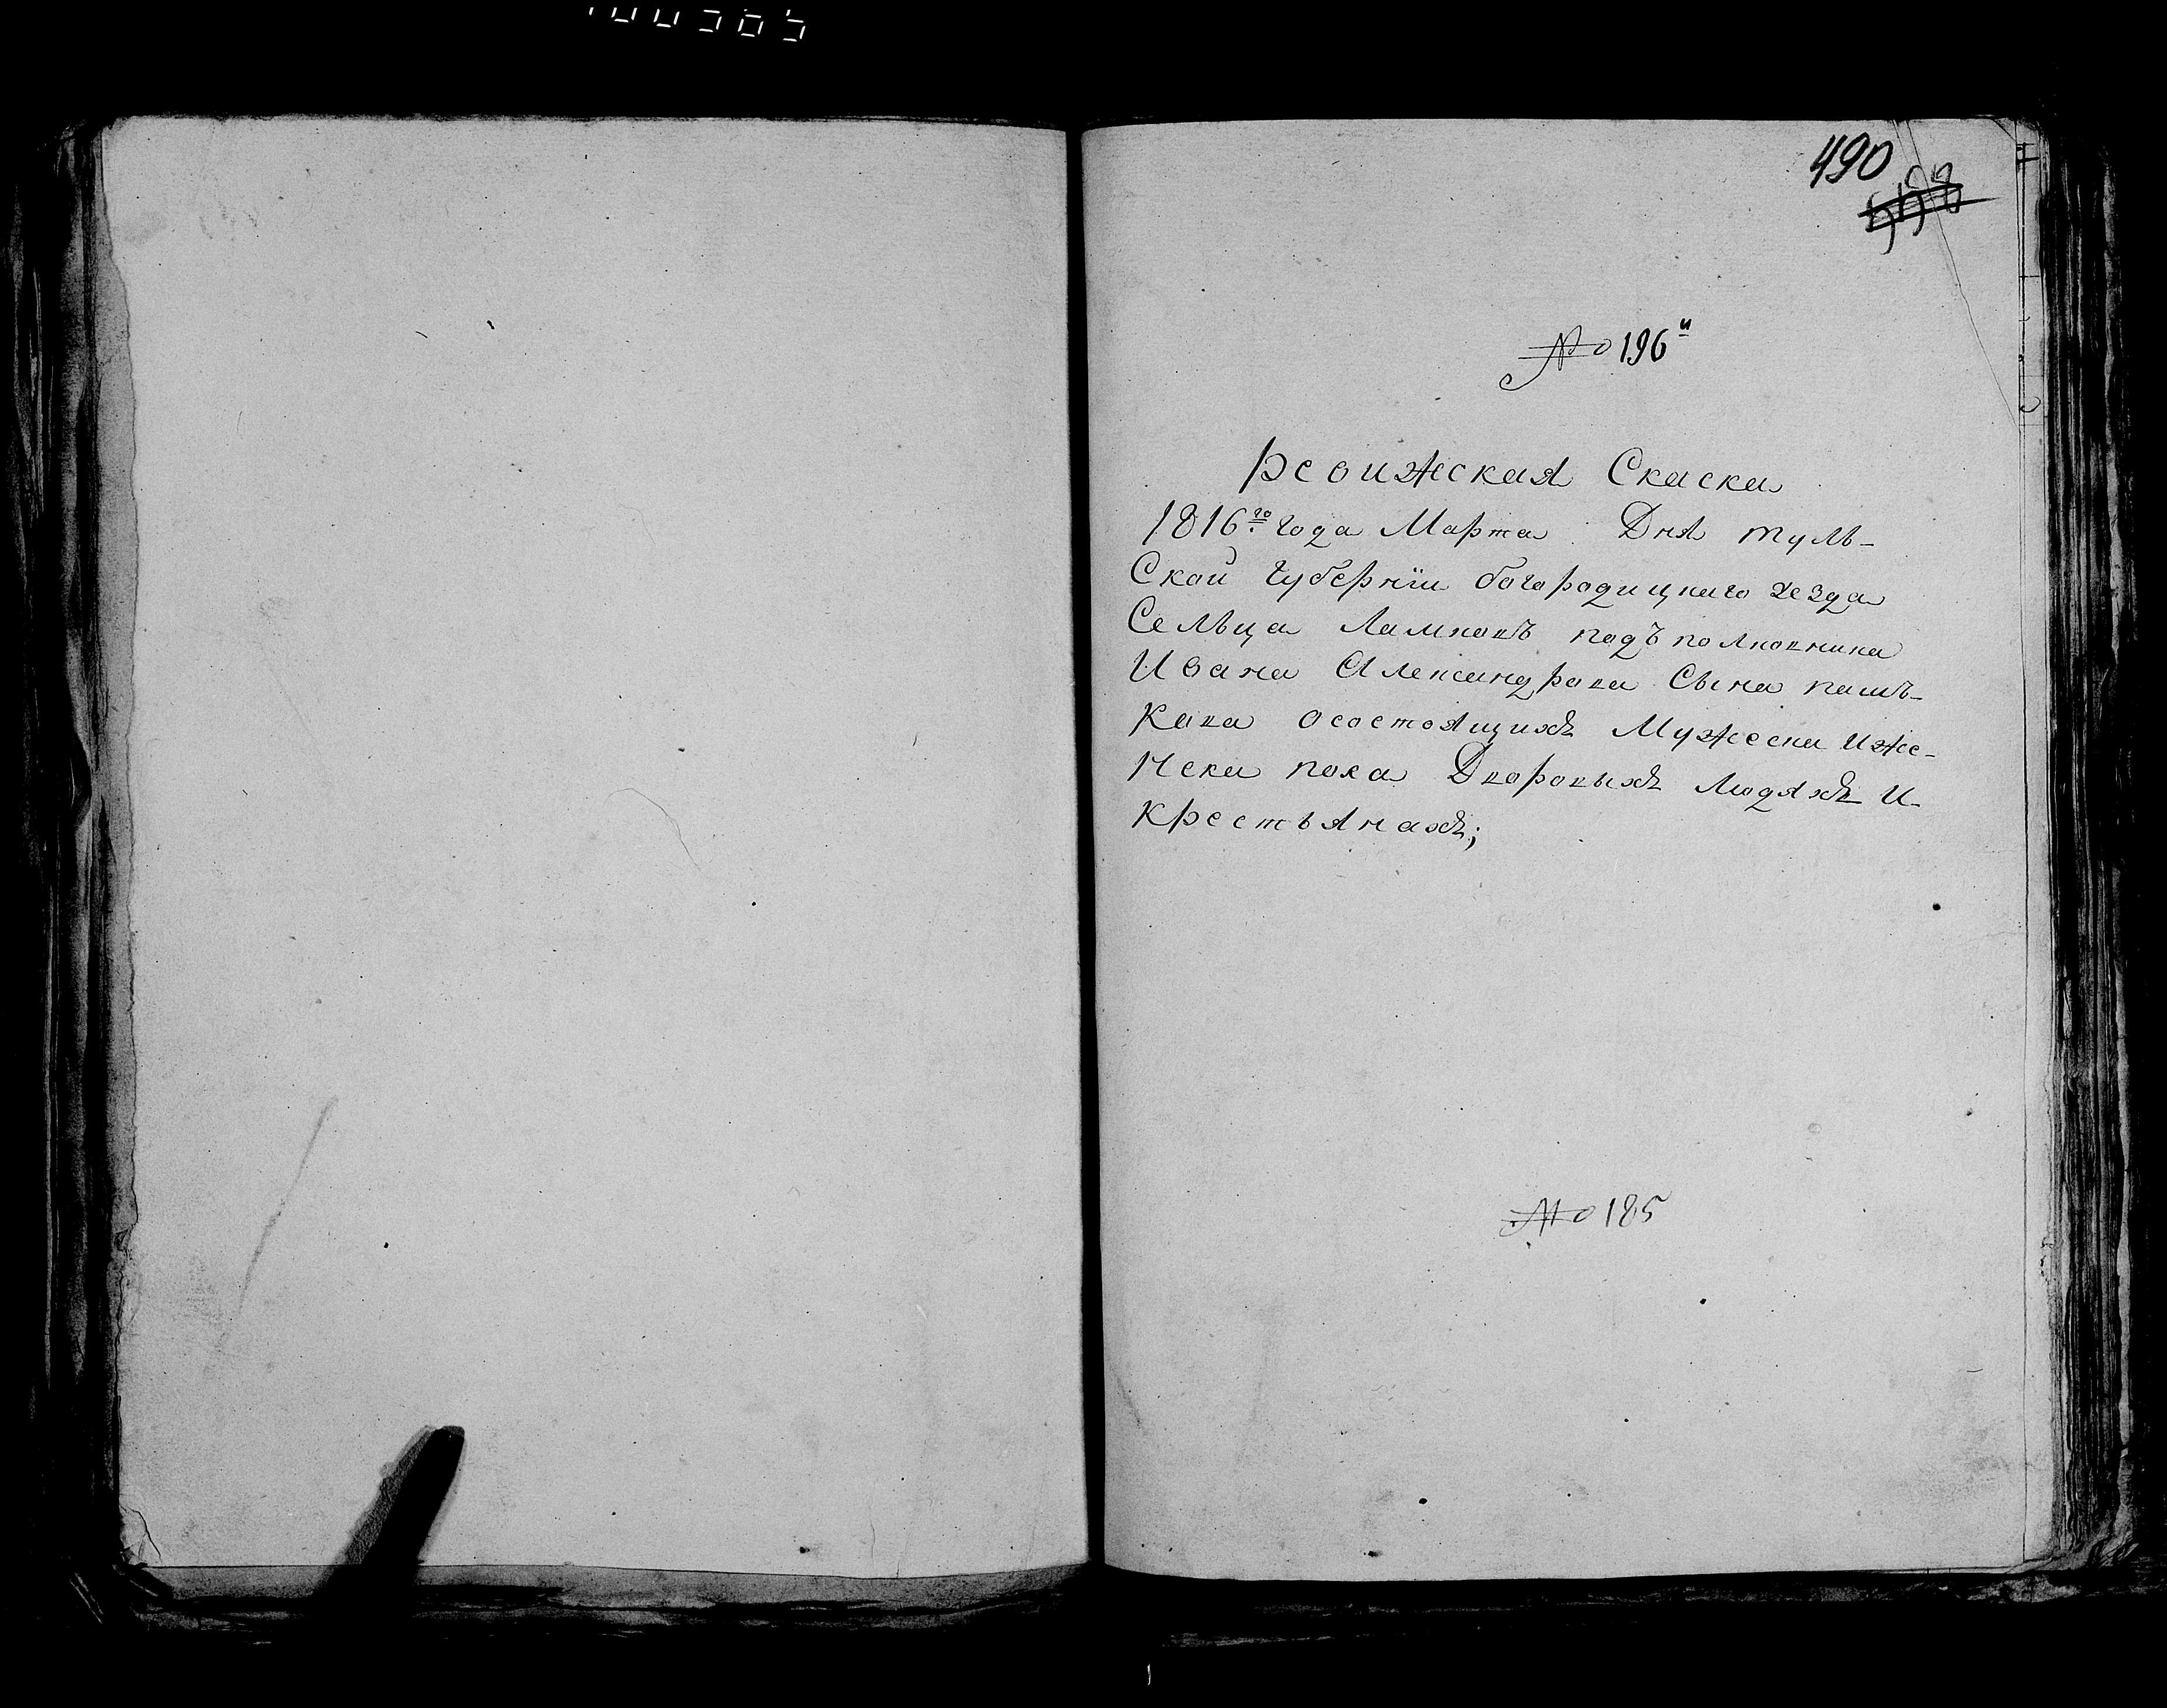 490
558
№ 196й
Ревижская Скаска
1816го года Марта Дня туль-
Скои губерніи богородицкаго уезда
Сельца Ламковъ подъполковника
Ивана Александрова Сына пашъ-
Кова осостоящихъ Мужеска Иже-
Нска пола Дворовыхъ людяхъ И
Крестьянахъ;
№ 185